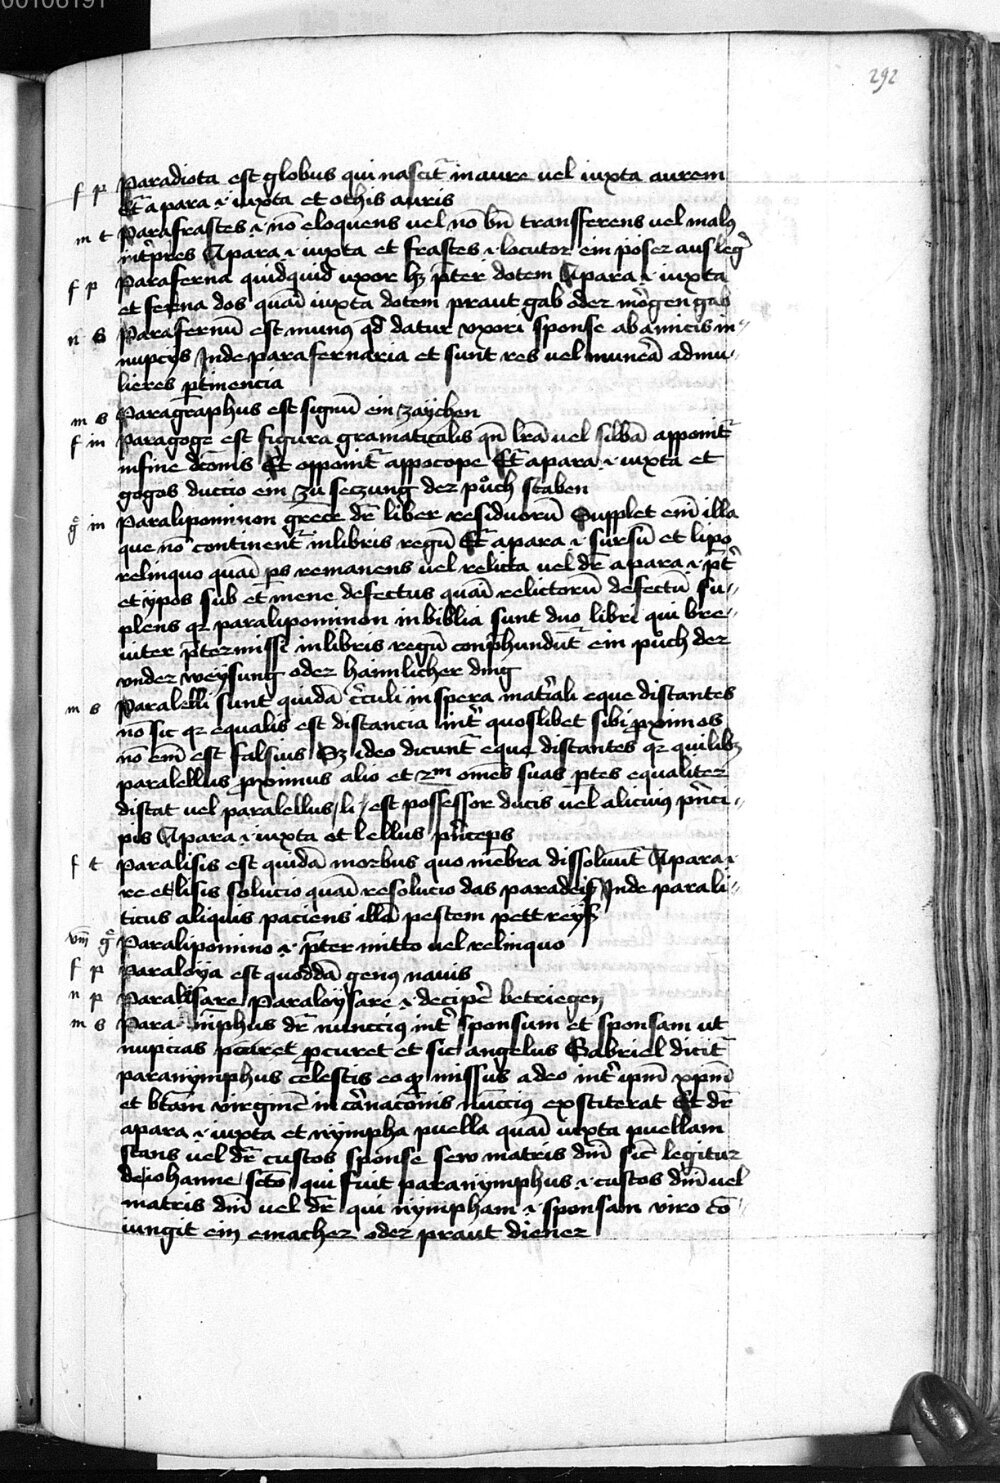 00108191
292
f p Paradiota est globus qui nascit̄ in aure uel iuxta aurem
Et̄ a para .i. iuxta et othis auris
m t Parafrastes .i. nō eloquens uel nō bn̄ transferens uel malꝰ
int̄pres A para .i. iuxta et frastes .i. locutor ein poser ausleḡ
f p Paraferna quidquid uxor hꝫ p̄ter dotem A para .i. iuxta
et ferna dos quaī iuxta dotem praut gab oder mo᷑gengab
n s Parafernū est munꝰ qd̄ datur vxori sponse ab amicis in
nupcijs Inde parafernaria et sunt res uel mun̄a ad mu
lieres ꝑtinencia
m s Paragraphus est signū ein zaÿchen
f in Paragoge est figura gramaticalis qn̄ lrā uel sillbā apponit̄
in fine dc̄onis Et opponit̄ appocope Et̄ a para .i. iuxta et
gogos duccio ein zu seczung der puͦch staben
g̊ in Paralipominon grece dr̄ liber residuorū Supplet em̄ illa
que nō continent̄ in libris regū Et̄ a para .i. sursū et lipo
relinquo quaī ꝑs remanens uel relicta uel dr̄ a para .i. p̄t̄
et ypos sub et mene defectus quaī relictorū defectū su
plens qꝛ paralipominon in biblia sunt duo libri qui bre
uiter p̄termissi in libris regū conp̄hundūt ein puͦch der
vnder weÿsung oder haimlicher ding
m s Paralelli sunt quidā c̄culi in spera mat̄iali eque distantes
nō sic qꝛ equalis est distancia int̄ quoslibet sibi ꝓximos
nō em̄ est falsius Sꝫ ideo dicunt̄ eque distantes qꝛ quilibꝫ
paralellus ꝓximus alio et 2m̄ omēs suas ꝑtes equaliter
distat uel paralellus, li, est possessor ducis uel alicuius pn̄ci
pis A para .i. iuxta et lellus pn̄ceps
f t Paralisis est quidā morbus quo mēbra dissoluūt A para .i.
re et lisis solucio quaī resolucio das paradeis Inde parali
ticus aliquis paciens illā pestem pett reÿs
viij g̊ Paralipomino .i. p̄ter mitto uel relinquo
f p Paraloÿa est quoddā genꝰ nauis
n p Paralisare Paraloÿsare .i. decip̄e betriegen
m s Para niphus dr̄ nuncciꝰ int̄ sponsum et sponsam ut
nupcias ꝓcuret et sic angelus Gabriel dicit̄
paranÿmphus celestis eo ꝙ missus a deo int̄ ipm̄ xpm̄
et btām virginē in carnacōnis nūcciꝰ exstiterat Et dr̄
a para .i. iuxta et nÿmpha puella quaī iuxta puellam
stans uel dr̄ custos sponse sew matris dn̄i sic̄ legitur
de iohanne sctō qui fuit paranÿmphus .i. custos dn̄i uel
matris dn̄i uel dr̄ qui nÿmpham .i. sponsam viro cō
iungit ein emacher oder praut diener